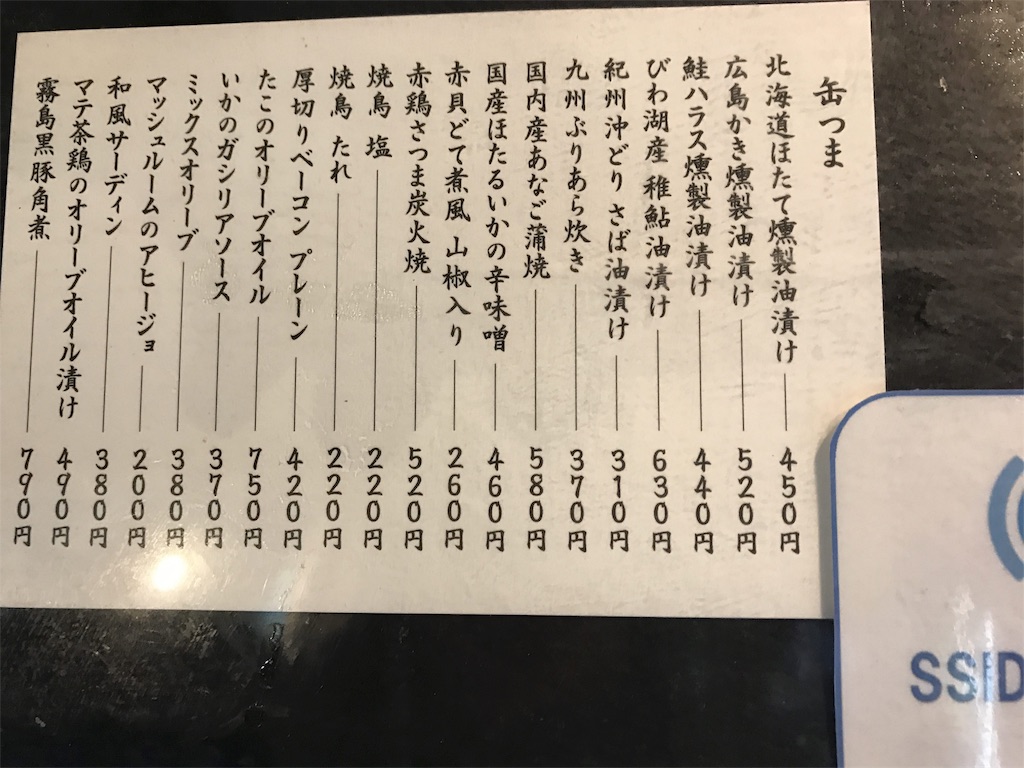 缶つま
北海道ほたて燻製油漬け 450円
広島かき燻製油漬け 520円
鮭ハラス燻製油漬け 440円
びわ湖産 稚鮎油漬け 630円
紀州沖どり さば油漬け 310円
九州ぶりあら炊き 370円
国内産あなご蒲焼 580円
国産ほたるいかの辛味噌 460円
赤貝どて煮風 山椒入り 260円
赤鶏さつま炭火焼 520円
焼鳥 塩 220円
焼鳥 たれ 220円
厚切りベーコン プレーン 420円
たこのオリーブオイル 750円
いかのガシリアソース 370円
ミックスオリーブ 380円
マッシュルームのアヒージョ 200円
和風サーディン 380円
マテ茶鶏のオリーブオイル漬け 490円
霧島黒豚角煮 790円
SSID